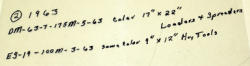 ② 1963
DM-63-7-175M-5-63 Color 17" x 22"
Loaders & Spreaders
E3-19-100M-3-63 Same Color 9" x 12" Hay Tools